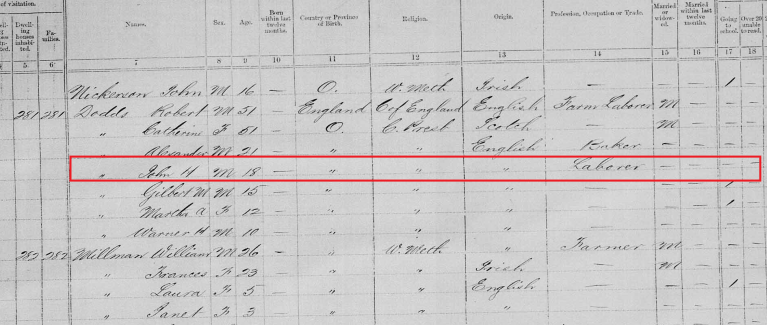 of visitation.
Dwell- ing houses inhabi- ted. Fa- milies. Names. Sex. Age. Born within last twelve months. Country or Province of Birth. Religion. Origin. Profession, Occupation or Trade. Married or widow- ed. Married within last twelve months. Going to school. Over 20 unable to read.
5 6 7 8 9 10 11 12 13 14 15 16 17 18
Nickerson John M 16 — O. W. Meth Irish — — — 1
281 281 Dodds Robert M 51 — England C of England English Farm Laborer M — —
" Catherine F 51 — O. C. Prest Scotch — M — —
" Alexander M 21 — " " English Baker — — —
" John H M 18 — " " " Laborer — — — —
" Gilbert M M 15 — " " " — — — 1
" Martha A F 12 — " " " — — — 1
" Warner H M 10 — " " " — — —
282 282 Millman William M 26 — " W. Meth " Farmer M — —
" Frances F 23 — " " Irish — M — —
" Laura F 5 — " " English — — — 1
" Janet F 3 — " " " — — —